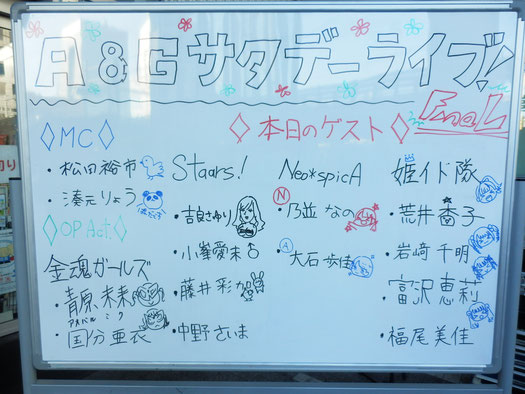 A&Gサタデーライブ!
FinaL
◇MC◇
・松田裕市
・湊元りょう
◇OP Act.◇
金魂ガールズ
・青原 未来
アオバル ミク
・国分 亜衣
◇本日のゲスト◇
Staars!
・吉良さゆり
・小峯愛未
・藤井彩加
・中野さいま
Neo*spicA
N
・乃並 なの
A
・大石 歩佳
姫イド隊
・荒井 杏子
・岩﨑 千明
・富沢 恵莉
・福尾 美佳